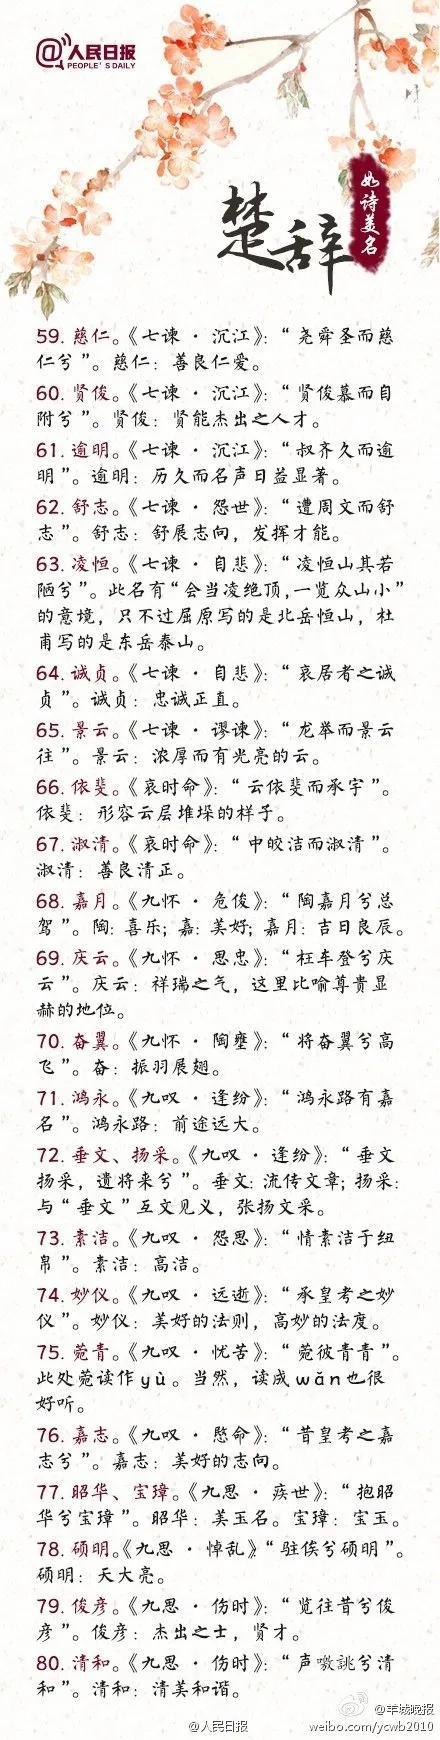 @人民日报
PEOPLE'S DAILY
楚辞
如诗美名
59. 慈仁。《七谏 · 沉江》：“尧舜圣而慈
仁兮”。慈仁：善良仁爱。
60. 贤俊。《七谏 · 沉江》：“贤俊慕而自
附兮”。贤俊：贤能杰出之人才。
61. 逾明。《七谏 · 沉江》：“叔齐久而逾
明”。逾明：历久而名声日益显著。
62. 舒志。《七谏 · 怨世》：“遭周文而舒
志”。舒志：舒展志向，发挥才能。
63. 凌恒。《七谏 · 自悲》：“凌恒山其若
陋兮”。此名有“会当凌绝顶，一览众山小”
的意境，只不过屈原写的是北岳恒山，杜
甫写的是东岳泰山。
64. 诚贞。《七谏 · 自悲》：“哀居者之诚
贞”。诚贞：忠诚正直。
65. 景云。《七谏 · 谬谏》：“龙举而景云
往”。景云：浓厚而有光亮的云。
66. 依斐。《哀时命》：“云依斐而承宇”。
依斐：形容云层堆垛的样子。
67. 淑清。《哀时命》：“中皎洁而淑清”。
淑清：善良清正。
68. 嘉月。《九怀 · 危俊》：“陶嘉月兮总
驾”。陶：喜乐；嘉：美好；嘉月：吉日良辰。
69. 庆云。《九怀 · 思忠》：“枉车登兮庆
云”。庆云：祥瑞之气，这里比喻尊贵显
赫的地位。
70. 奋翼。《九怀 · 陶壅》：“将奋翼兮高
飞”。奋：振羽展翅。
71. 鸿永。《九叹 · 逢纷》：“鸿永路有嘉
名”。鸿永路：前途远大。
72. 垂文、扬采。《九叹 · 逢纷》：“垂文
扬采，遗将来兮”。垂文：流传文章；扬采：
与“垂文”互文见义，张扬文采。
73. 素洁。《九叹 · 怨思》：“情素洁于纽
帛”。素洁：高洁。
74. 妙仪。《九叹 · 远逝》：“承皇考之妙
仪”。妙仪：美好的法则，高妙的法度。
75. 菀青。《九叹 · 忧苦》：“菀彼青青”。
此处菀读作yù。当然，读成wǎn也很
好听。
76. 嘉志。《九叹 · 愍命》：“昔皇考之嘉
志兮”。嘉志：美好的志向。
77. 昭华、宝璋。《九思 · 疾世》：“抱昭
华兮宝璋”。昭华：美玉名。宝璋：宝玉。
78. 硕明。《九思 · 悼乱》“驻俟兮硕明”。
硕明：天大亮。
79. 俊彦。《九思 · 伤时》：“览往昔兮俊
彦”。俊彦：杰出之士，贤才。
80. 清和。《九思 · 伤时》：“声噭誂兮清
和”。清和：清美和谐。
@人民日报
@羊城晚报
weibo.com/ycwb2010